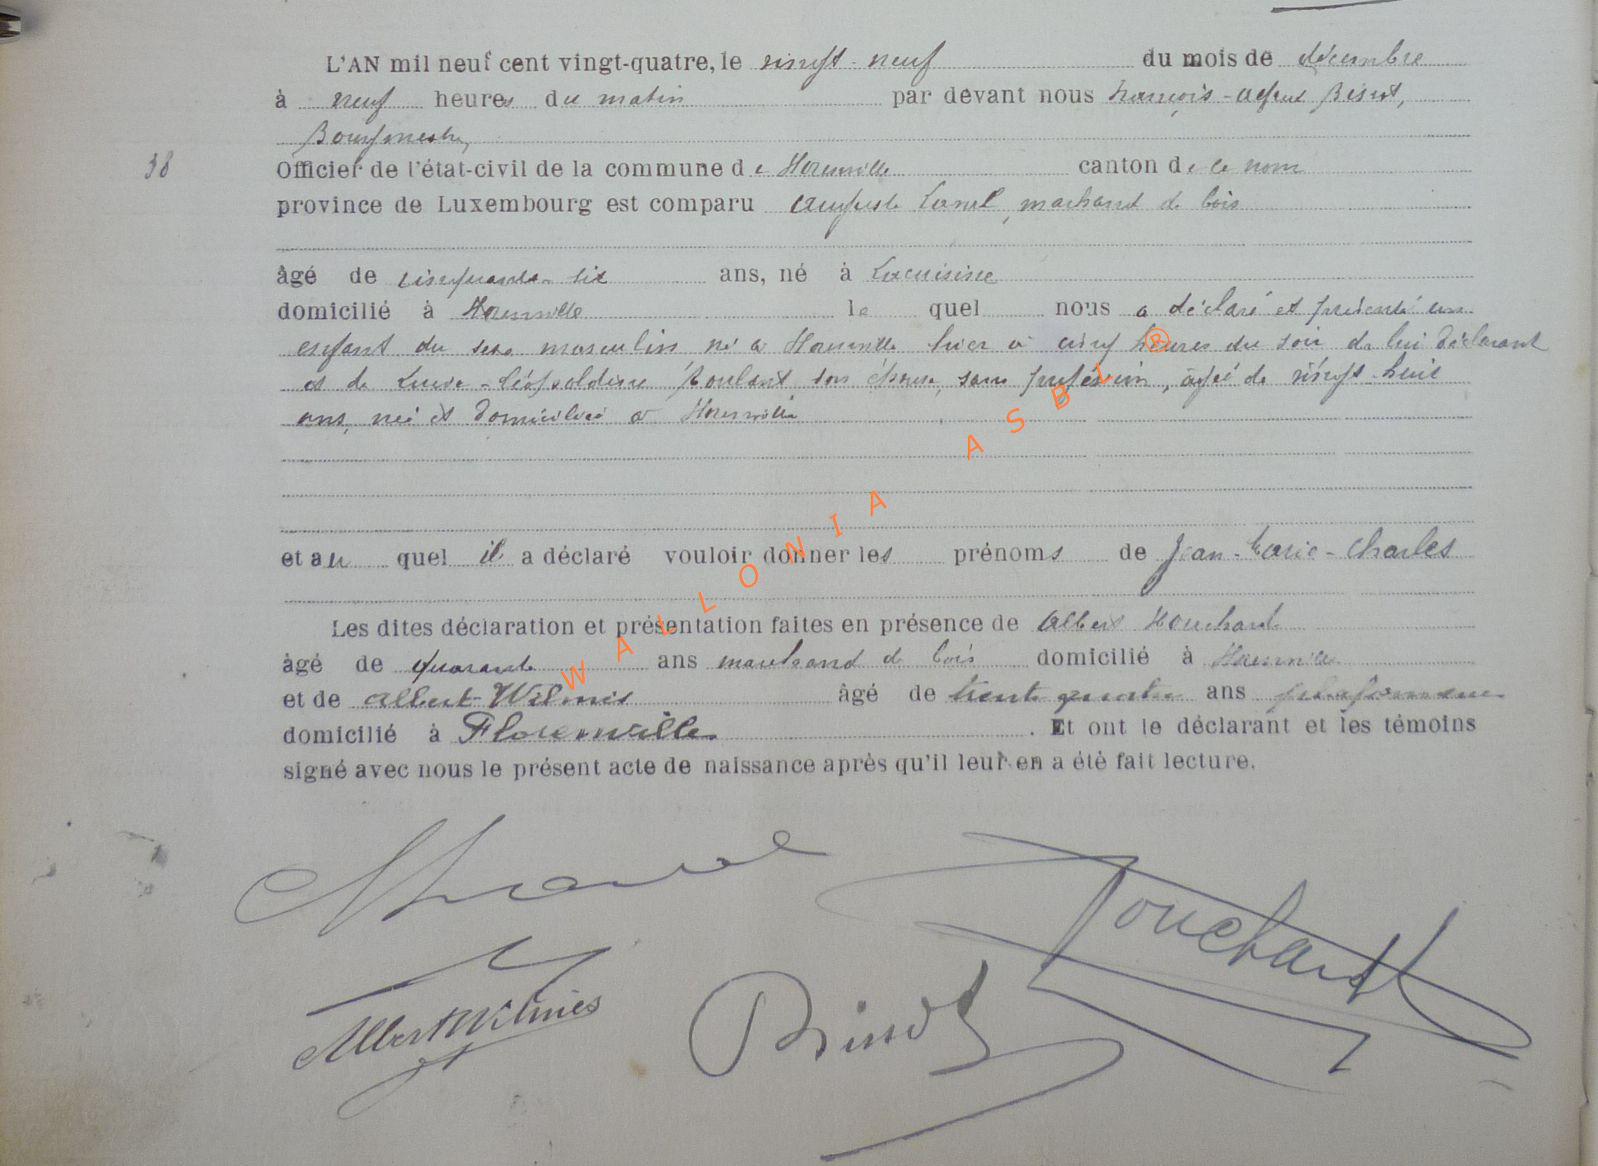 L'AN mil neuf cent vingt-quatre, le vingt-neuf du mois de décembre
à neuf heures du matin par devant nous
Bourgmestre,
38 Officier de l'état-civil de la commune de Florenville canton de ce nom
province de Luxembourg est comparu Auguste marchand de bois
âgé de cinquante-six ans, né à Lacuisine
domicilié à Florenville le quel nous a déclaré et présenté un
enfant du sexe masculin né à Florenville hier à cinq heures du soir de lui déclarant
et de Léopoldine son épouse, sans profession, âgée de vingt-huit
ans, née et domiciliée à Florenville
et au quel il a déclaré vouloir donner les prénoms de Jean-Marie-Charles
Les dites déclaration et présentation faites en présence de Albert Fouchard
âgé de quarante ans marchand de bois domicilié à Florenville
et de Albert Wilmès âgé de trente quatre ans
domicilié à Florenville. Et ont le déclarant et les témoins
signé avec nous le présent acte de naissance après qu'il leur en a été fait lecture.
WALLONIA ASBL ®
Fouchard
Albert Wilmès